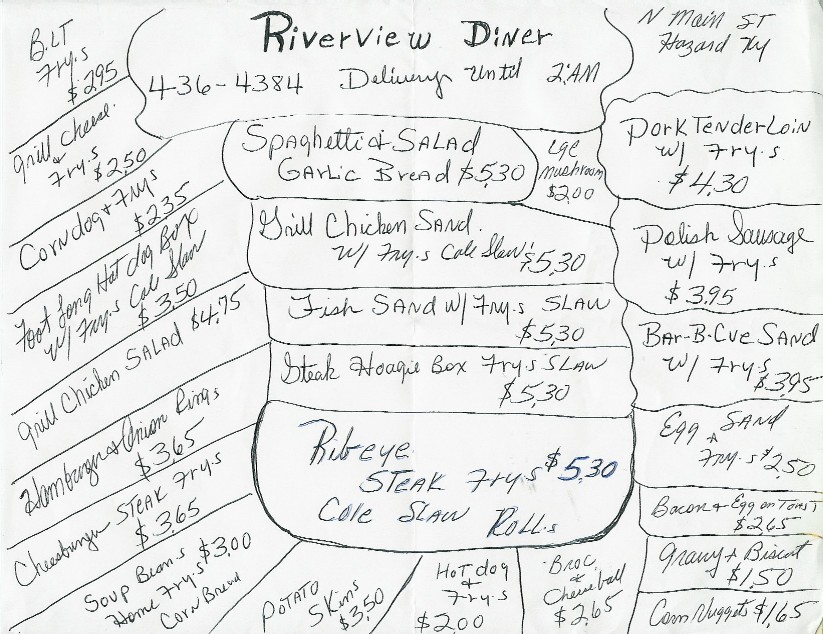 Riverview Diner
436-4384 Delivery Until 2:AM
N Main ST
Hazard Ky
B.LT
Fry.s
$2.95
Grill Cheese
&
Fry.s
$2.50
Corndog + Frys
$2.35
Foot Long Hot dog Box
w/ Fry.s Cole Slaw
$3.50
Grill Chicken SALAD $4.75
Hamburger & Onion Rings
$3.65
Cheesburger STEAK Fry.s
$3.65
Soup Bean.s $3.00
Home Fry.s
Corn Bread
Spaghetti & SALAD
GArLic Bread $5.30
Lge
Mushroom
$2.00
Grill Chicken Sand.
w/ Fry.s Cole Slaw $5.30
Fish SAND w/ Fry.s SLAW
$5.30
Steak Hoagie Box Fry.s SLAW
$5.30
Ribeye
STEAK Fry.s $5.30
Cole SLAW ROLL.s
Pork TenderLoin
w/ Fry.s
$4.30
Polish Sausage
w/ Fry.s
$3.95
Bar-B-Cue Sand
w/ Fry.s
$3.95
Egg SAND
+
Fry.s $2.50
Bacon + Egg on Toast
$2.65
Gravy + Biscut
$1.50
Corn Nuggets $1.65
POTATO
Skins
$3.50
HoT dog
&
Fry.s
$2.00
Broc.
&
Cheeseball
$2.65